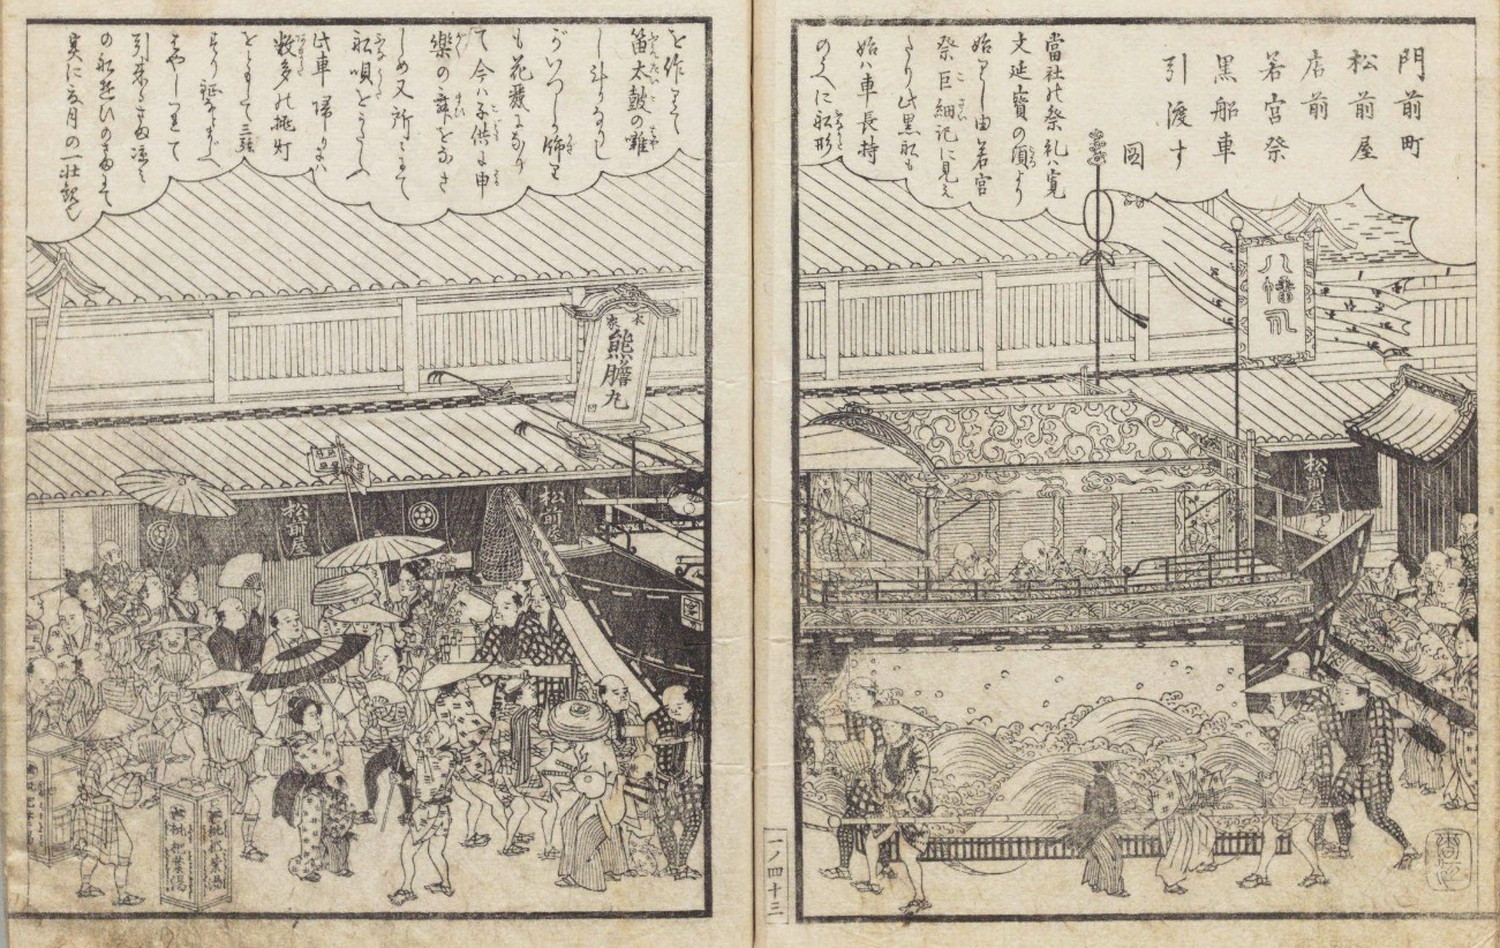 門前町
松前屋
店前
若宮祭
黒船車
引渡す
図
當社の祭礼ハ寛
文延寶の頃より
始りし由若宮
祭巨細記に見え
たり此黒船も
始ハ車長持
のうへに船形
を作りて
笛太鼓の囃
し斗りなりし
がいつしか飾り
も花麗になり
て今ハ子供に申
樂の舞をなさ
しめ又所々にて
船唄をうたふ
此車帰りにハ
数多の挑灯
をともして三弦
はやしつれて
引来る
の船遊びの
実に夏月の一壮観也
八幡丸
本家
熊膽丸
松前屋
松前屋
松前屋
枇杷葉湯
枇杷葉湯
一ノ四十三